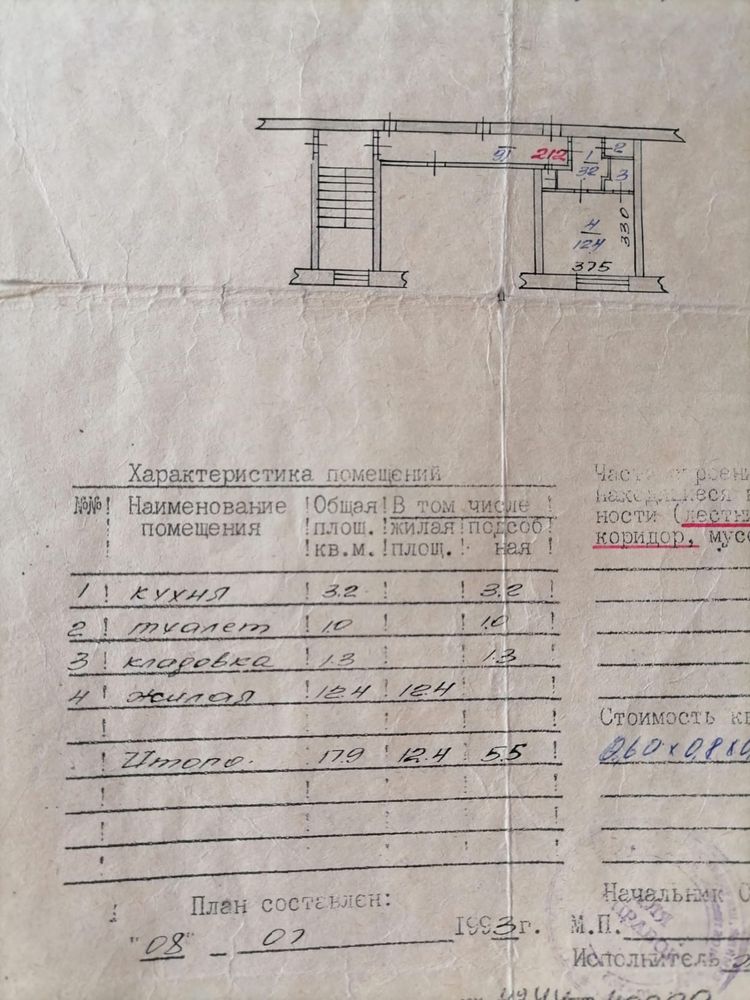 91 212 1 2
32 3
4
12.4 330
375
Характеристика помещений
№№ Наименование помещения Общая площ. кв.м. В том числе жилая площ. подсобная
1 кухня 3.2 3.2
2 туалет 1.0 1.0
3 кладовка 1.3 1.3
4 жилая 12.4 12.4
Итого 17.9 12.4 5.5
План составлен:
"08" – 07 1993г.
ности (лестн
коридор, мусо
Стоимость кв
0,60 х 0,8 х 0,
Начальник
М.П.
Исполнитель